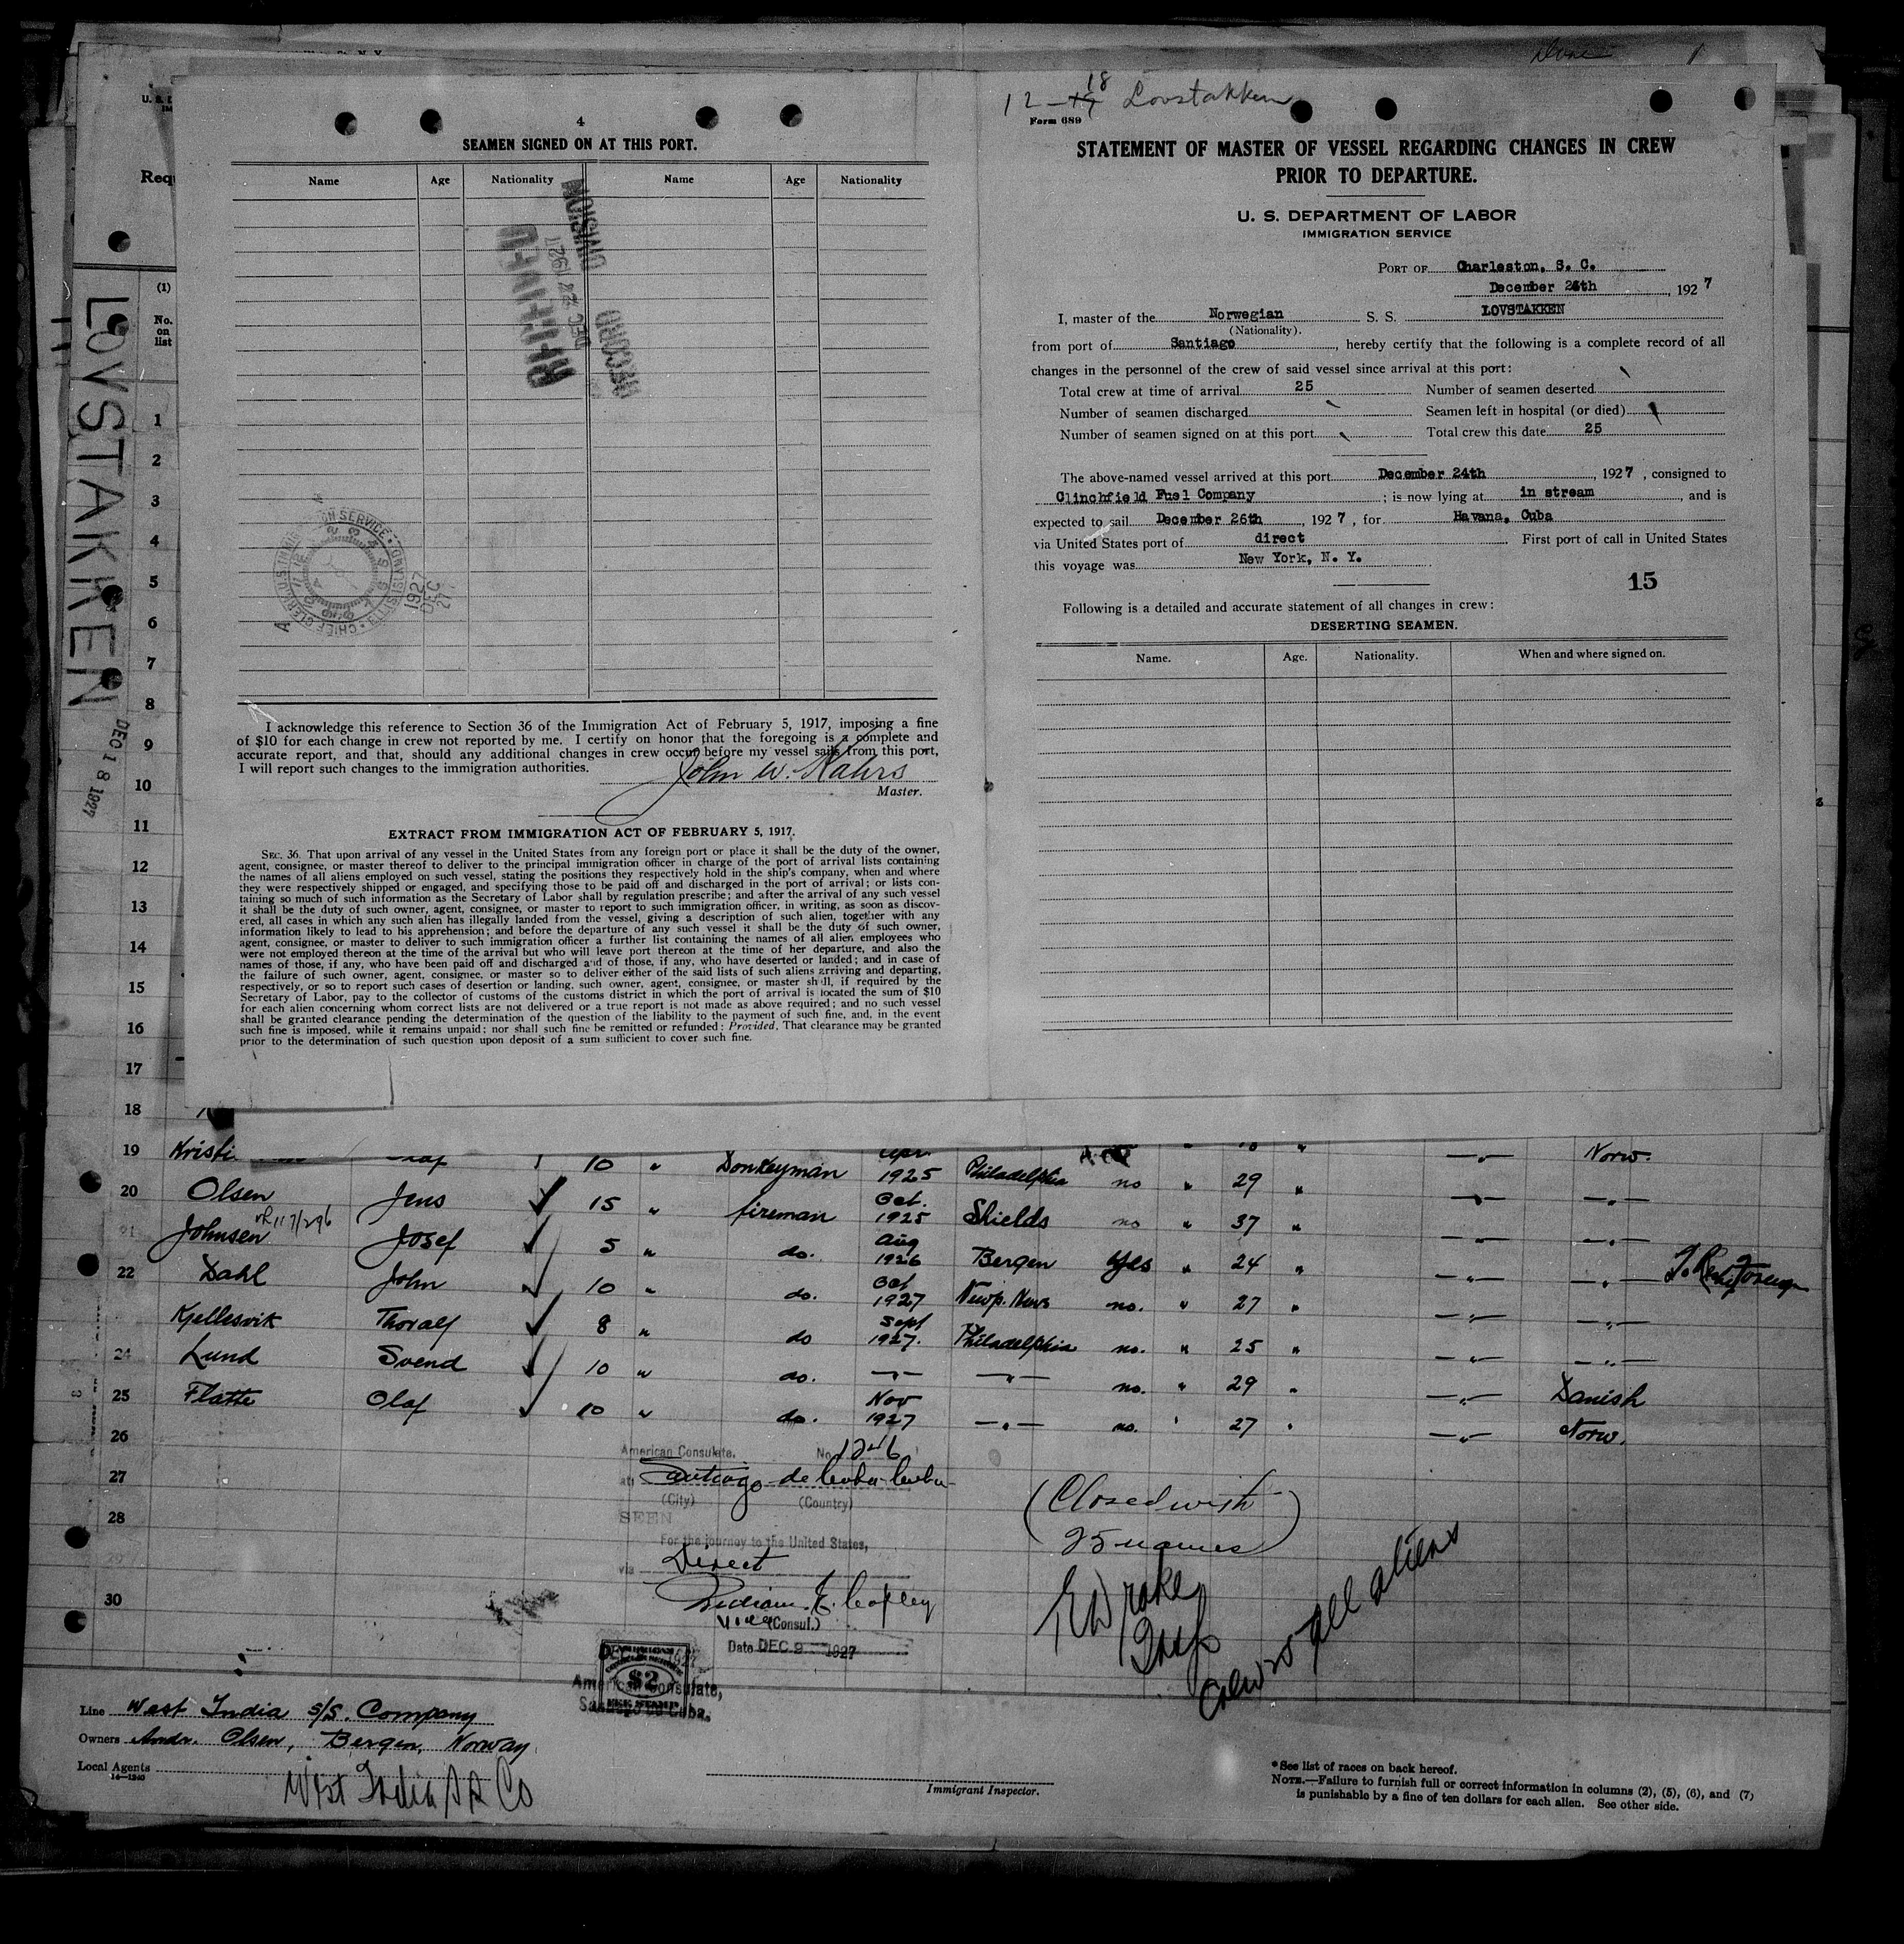 4
SEAMEN SIGNED ON AT THIS PORT.
Name Age Nationality Name Age Nationality
RECEIVED
DEC 28 1927
RECORD DIVISION
CHIEF CLERK U.S. IMMIGRATION SERVICE ELLIS ISLAND
1927 DEC 27
I acknowledge this reference to Section 36 of the Immigration Act of February 5, 1917, imposing a fine
of $10 for each change in crew not reported by me. I certify on honor that the foregoing is a complete and
accurate report, and that, should any additional changes in crew occur before my vessel sails from this port,
I will report such changes to the immigration authorities.
John W. Kahrs
Master.
EXTRACT FROM IMMIGRATION ACT OF FEBRUARY 5, 1917.
SEC. 36. That upon arrival of any vessel in the United States from any foreign port or place it shall be the duty of the owner,
agent, consignee, or master thereof to deliver to the principal immigration officer in charge of the port of arrival lists containing
the names of all aliens employed on such vessel, stating the positions they respectively hold in the ship's company, when and where
they were respectively shipped or engaged, and specifying those to be paid off and discharged in the port of arrival; or lists con-
taining so much of such information as the Secretary of Labor shall by regulation prescribe; and after the arrival of any such vessel
it shall be the duty of such owner, agent, consignee, or master to report to such immigration officer, in writing, as soon as discov-
ered, all cases in which any such alien has illegally landed from the vessel, giving a description of such alien, together with any
information likely to lead to his apprehension; and before the departure of any such vessel it shall be the duty of such owner,
agent, consignee, or master to deliver to such immigration officer a further list containing the names of all alien employees who
were not employed thereon at the time of the arrival but who will leave port thereon at the time of her departure, and also the
names of those, if any, who have been paid off and discharged and of those, if any, who have deserted or landed; and in case of
the failure of such owner, agent, consignee, or master so to deliver either of the said lists of such aliens arriving and departing,
respectively, or so to report such cases of desertion or landing, such owner, agent, consignee, or master shall, if required by the
Secretary of Labor, pay to the collector of customs of the customs district in which the port of arrival is located the sum of $10
for each alien concerning whom correct lists are not delivered or a true report is not made as above required; and no such vessel
shall be granted clearance pending the determination of the question of the liability to the payment of such fine, and, in the event
such fine is imposed, while it remains unpaid; nor shall such fine be remitted or refunded: Provided, That clearance may be granted
prior to the determination of such question upon deposit of a sum sufficient to cover such fine.
12-18 Lovstakken
Form 689
STATEMENT OF MASTER OF VESSEL REGARDING CHANGES IN CREW
PRIOR TO DEPARTURE.
U. S. DEPARTMENT OF LABOR
IMMIGRATION SERVICE
PORT OF Charleston, S. C.
December 24th, 1927
I, master of the Norwegian S. S. LOVSTAKKEN
(Nationality).
from port of Santiago, hereby certify that the following is a complete record of all
changes in the personnel of the crew of said vessel since arrival at this port:
Total crew at time of arrival 25 Number of seamen deserted
Number of seamen discharged Seamen left in hospital (or died)
Number of seamen signed on at this port Total crew this date 25
The above-named vessel arrived at this port December 24th, 1927, consigned to
Clinchfield Fuel Company; is now lying at in stream, and is
expected to sail December 26th, 1927, for Havana, Cuba
via United States port of direct First port of call in United States
this voyage was New York, N. Y.
15
Following is a detailed and accurate statement of all changes in crew:
DESERTING SEAMEN.
Name. Age. Nationality. When and where signed on.
LOVSTAKKEN
DEC 18 1927
(1)
No.
on
list
1
2
3
4
5
6
7
8
9
10
11
12
13
14
15
16
17
18
19 Kristi 10 " Donkeyman 1925 Philadelphia no " 29 " —"— Norw.
20 Olsen Jens ✓ 15 " fireman Oct. 1925 Shields no " 37 " —"— —"—
21 Johnsen Josef ✓ 5 " do. Aug 1926 Bergen Yes " 24 " —"— —"—
22 Dahl John ✓ 10 " do. Oct 1927 Newp. News no. " 27 " —"— —"—
Kjellesvik Thoralf ✓ 8 " do Sept 1927. Philadelphia no. " 25 " —"— —"—
24 Lund Svend ✓ 10 " do. —"— —"— no. " 29 " —"— Danish
25 Flatte Olaf ✓ 10 " do. Nov 1927 —"— no. " 27 " —"— Norw.
26
27
28
29
30
American Consulate. No. 1246
at Santiago de Cuba Cuba
(City) (Country)
SEEN
For the journey to the United States,
via Direct
Vice (Consul.)
Date DEC 9 - 1927
$2
FEE STAMP
American Consulate,
Santiago de Cuba.
(Closed with
25 names)
all aliens
Line West India S/S. Company
Owners Andr. Olsen, Bergen, Norway
Local Agents West India SS Co
14—1240
Immigrant Inspector.
*See list of races on back hereof.
NOTE.—Failure to furnish full or correct information in columns (2), (5), (6), and (7)
is punishable by a fine of ten dollars for each alien. See other side.